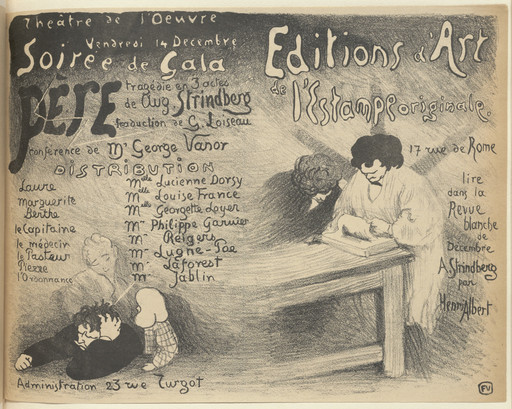 Théâtre de l'Oeuvre
Vendredi 14 Decembre
Soirée de Gala
PÈRE
tragédie en 3 actes
de Aug Strindberg
traduction de G. Loiseau
conférence de Mr George Vanor
DISTRIBUTION
Laure Melle Lucienne Dorsy
Marguerite Melle Louise France
Berthe Melle Georgette Loyer
le Capitaine Mr Philippe Garnier
le médecin Mr Reigers
le Pasteur Mr Lugné-Poe
Pierre Mr Laforest
l'Ordonnance Mr Jablin
Administration 23 rue Turgot
Editions d'Art
de l'Estampe originale.
17 rue de Rome
lire
dans la
Revue
blanche
de
Décembre
A. Strindberg
par
Henri Albert
FV